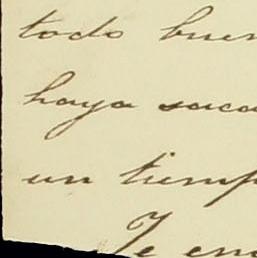 todo buen
haya saca
un tiemp
Te en